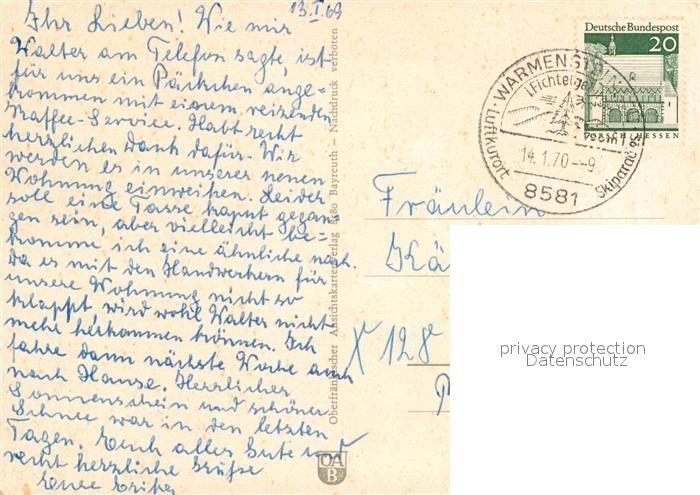 13.I.69
Ihr Lieben! Wie mir
Walter am Telefon sagte, ist
für uns ein Päckchen ange-
kommen mit einem reizenden
Kaffee-Service. Habt recht
herzlichen Dank dafür. Wir
werden es in unserer neuen
Wohnung einweihen. Leider
soll eine Tasse kaput gegan-
gen sein, aber vielleicht be-
komme ich eine ähnliche nach.
Da es mit den Handwerkern für
unsere Wohnung nicht so
klappt, wird wohl Walter nicht
mehr herkommen können. Ich
fahre dann nächste Woche auch
nach Hause. Herrlicher
Sonnenschein und schöner
Schnee war in den letzten
Tagen. Euch alles Gute und
recht herzliche Grüße
Eure Erika
Oberfränkischer Ansichtskartenverlag 8580 Bayreuth — Nachdruck verboten
OA
B
Deutsche Bundespost
20
LORSCH/HESSEN
WARMENSTEIN
(Fichtelgeb.)
14.1.70--9
8581
Luftkurort
Skiparadies
Fräulein
Kä
X 128
privacy protection
Datenschutz